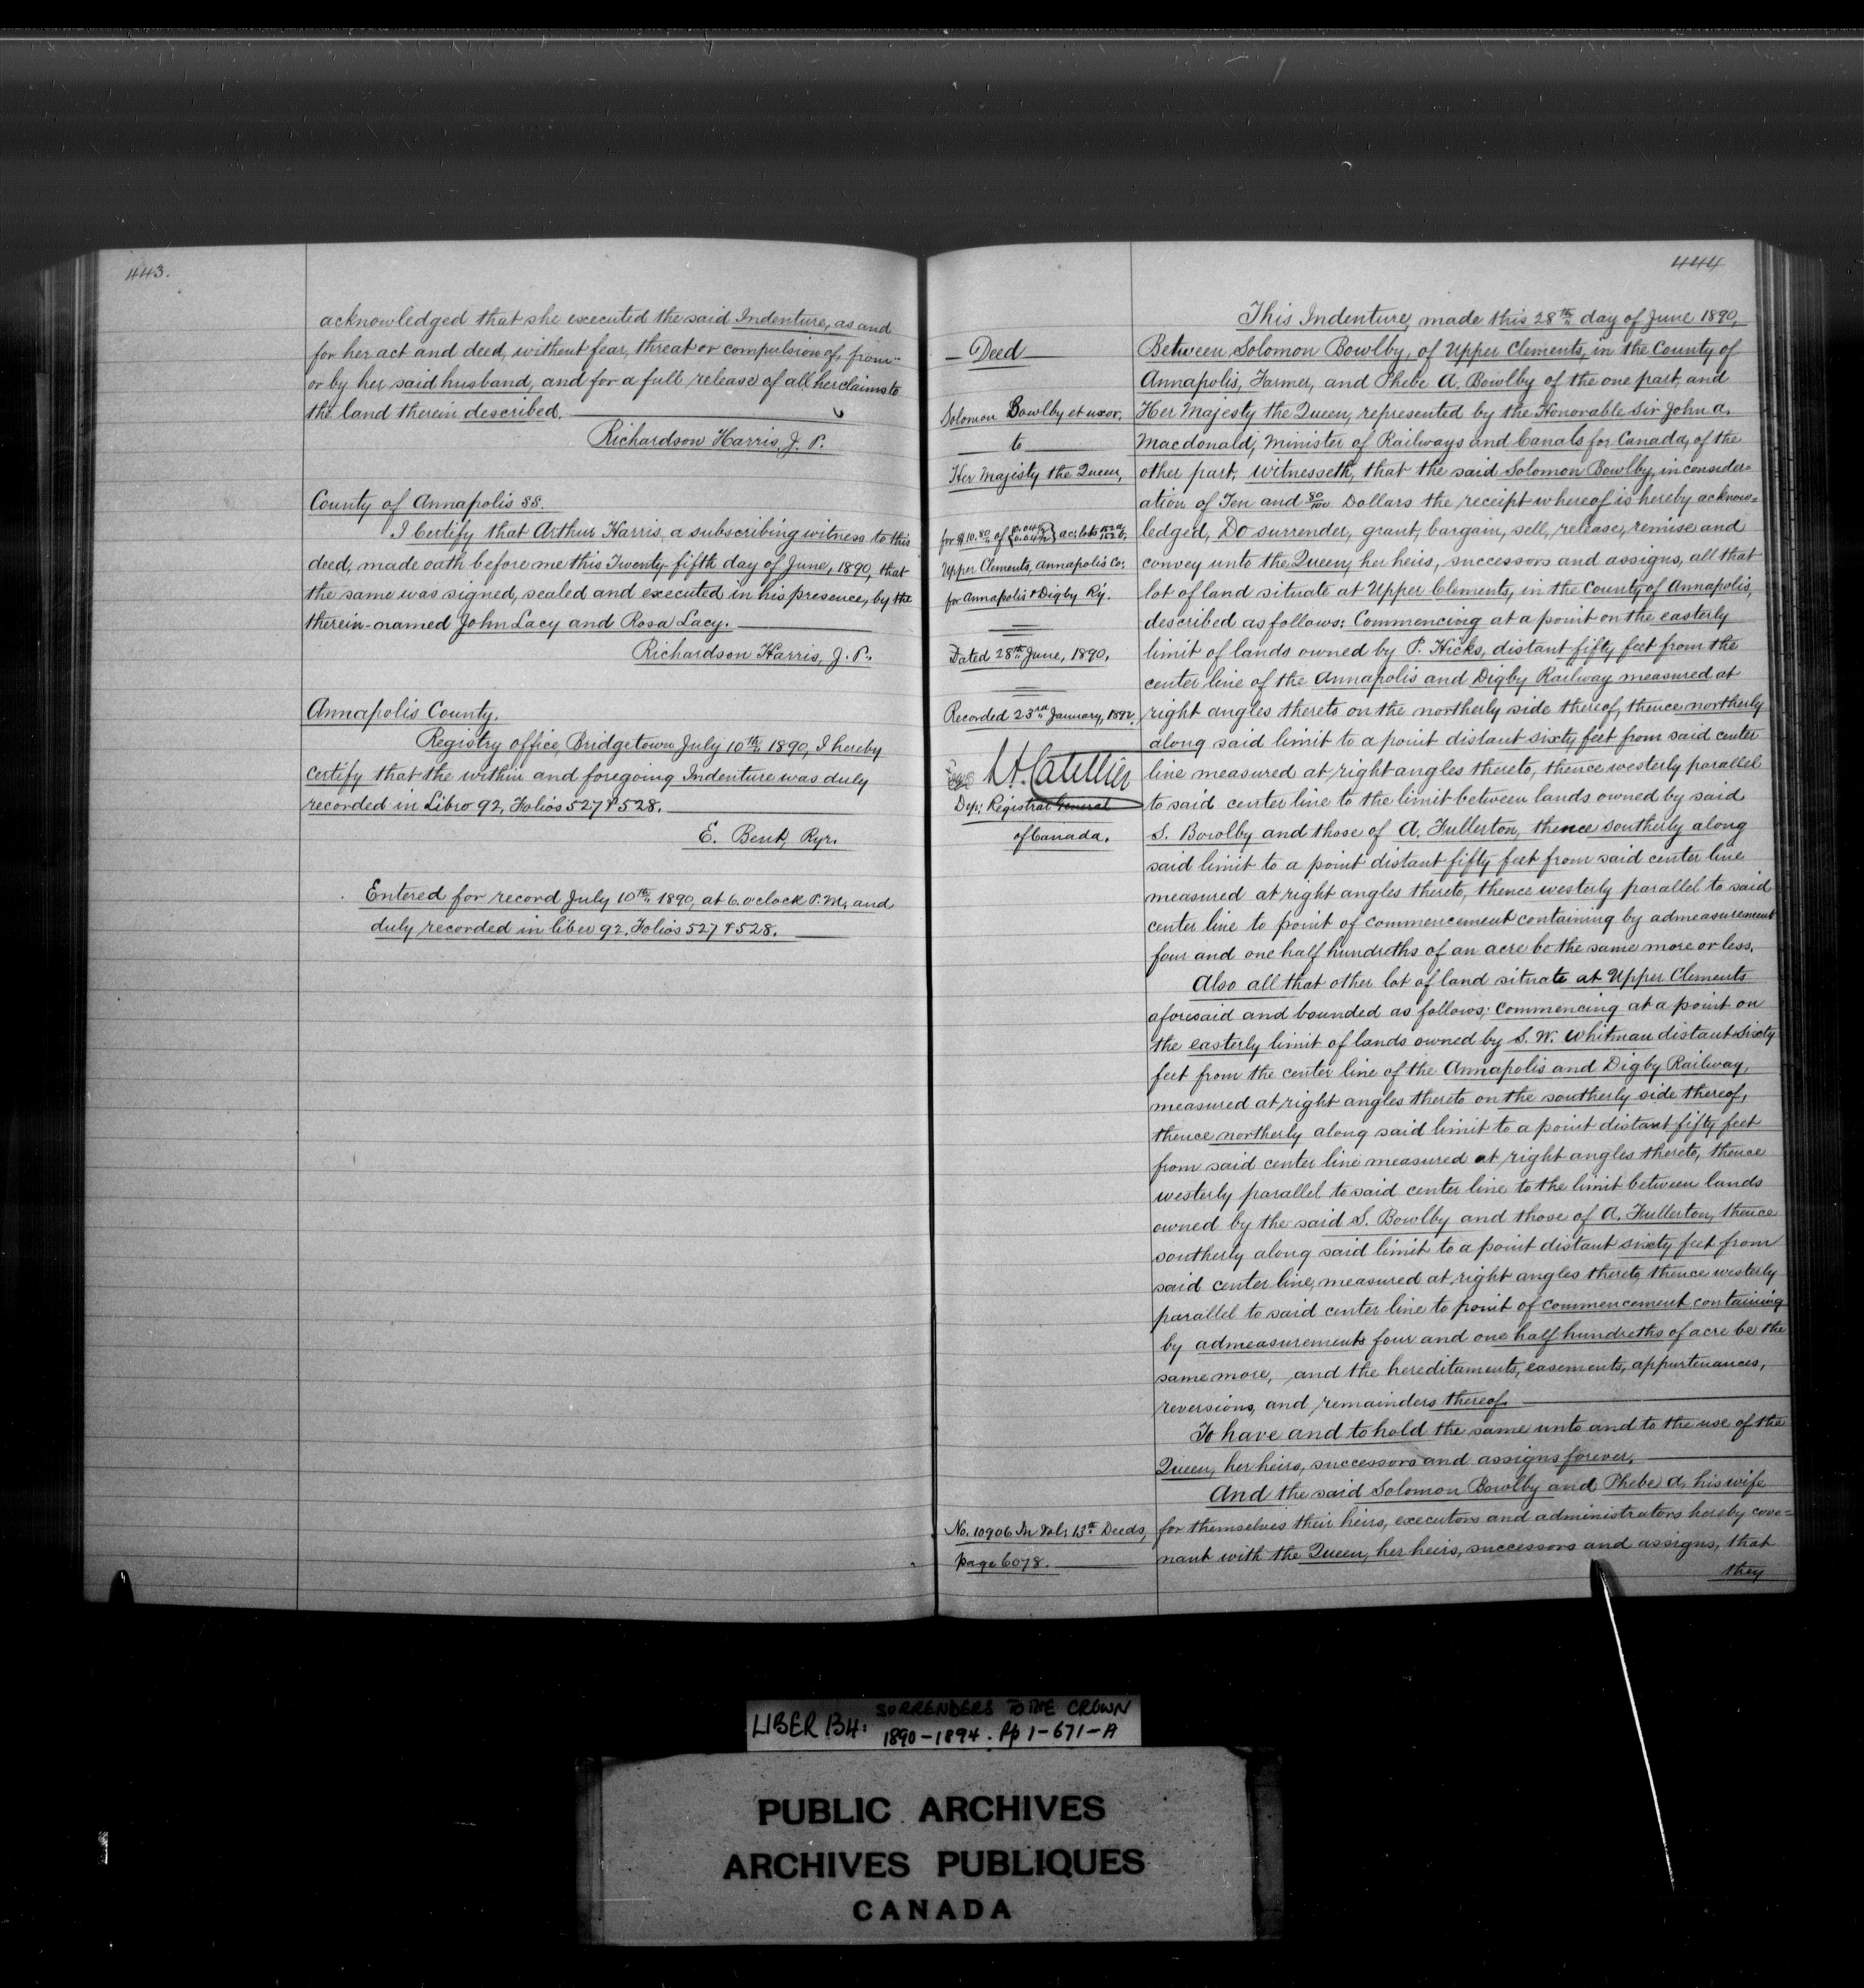 443.
acknowledged that she executed the said Indenture, as and
for her act and deed, without fear, threat or compulsion of, from
or by her said husband, and for a full release of all her claims to
the land therein described.
Richardson Harris, J. P.
County of Annapolis SS.
I Certify that Arthur Harris, a subscribing witness to this
deed, made oath before me this Twenty-fifth day of June, 1890, that
the same was signed, sealed and executed in his presence, by the
therein-named John Lacy and Rosa Lacy.
Richardson Harris, J. P.
Annapolis County.
Registry office, Bridgetown July 10th 1890, I hereby
certify that the within and foregoing Indenture was duly
recorded in Libro 92, Folios 527 & 528.
E. Bent, Rgr.
Entered for record July 10th 1890, at 6. o'clock P.M. and
duly recorded in liber 92. Folios 527 & 528.
444
Deed
Solomon Bowlby et uxor.
to
Her Majesty the Queen,
for $10.80 of ac:
Upper Clements, Annapolis Co:
for Annapolis & Digby Ry.
Dated 28th June, 1890.
Recorded 23rd January, 1892.
Dep: Registrar General
of Canada.
No. 10906 In Vol: 13th Deeds,
page 6078.
This Indenture, made this 28th day of June 1890,
Between Solomon Bowlby, of Upper Clements, in the County of
Annapolis, Farmer, and Phebe A. Bowlby of the one part, and
Her Majesty the Queen, represented by the Honorable Sir John A.
Macdonald, Minister of Railways and Canals for Canada, of the
other part, witnesseth, that the said Solomon Bowlby, in consider=
ation of Ten and 80/100 Dollars the receipt whereof is hereby acknow=
ledged, Do surrender, grant, bargain, sell, release, remise and
convey unto the Queen, her heirs, successors and assigns, all that
lot of land situate at Upper Clements, in the County of Annapolis,
described as follows: Commencing at a point on the easterly
limit of lands owned by P. Hicks, distant fifty feet from the
center line of the Annapolis and Digby Railway measured at
right angles thereto on the northerly side thereof, thence northerly
along said limit to a point distant sixty feet from said center
line measured at right angles thereto, thence westerly parallel
to said center line to the limit between lands owned by said
S. Bowlby and those of A. Fullerton, thence southerly along
said limit to a point distant fifty feet from said center line
measured at right angles thereto, thence westerly parallel to said
center line to point of commencement containing by admeasurement
four and one half hundreths of an acre be the same more or less.
Also all that other lot of land situate at Upper Clements
aforesaid and bounded as follows; commencing at a point on
the easterly limit of lands owned by S. W. Whitman distant sixty
feet from the center line of the Annapolis and Digby Railway,
measured at right angles thereto on the southerly side thereof,
thence northerly along said limit to a point distant fifty feet
from said center line measured at right angles thereto, thence
westerly parallel to said center line to the limit between lands
owned by the said S. Bowlby and those of A. Fullerton, thence
southerly along said limit to a point distant sixty feet from
said center line, measured at right angles thereto, thence westerly
parallel to said center line to point of commencement containing
by admeasurements four and one half hundreths of acre be the
same more, and the hereditaments, easements, appurtenances,
reversions, and remainders thereof.
To have and to hold the same unto and to the use of the
Queen, her heirs, successors and assigns forever.
And the said Solomon Bowlby and Phebe A. his wife
for themselves their heirs, executors and administrators hereby cove=
nant with the Queen, her heirs, successors and assigns, that
they
LIBER B4: SURRENDERS TO THE CROWN
1890-1894. Pp 1-671-A
PUBLIC ARCHIVES
ARCHIVES PUBLIQUES
CANADA